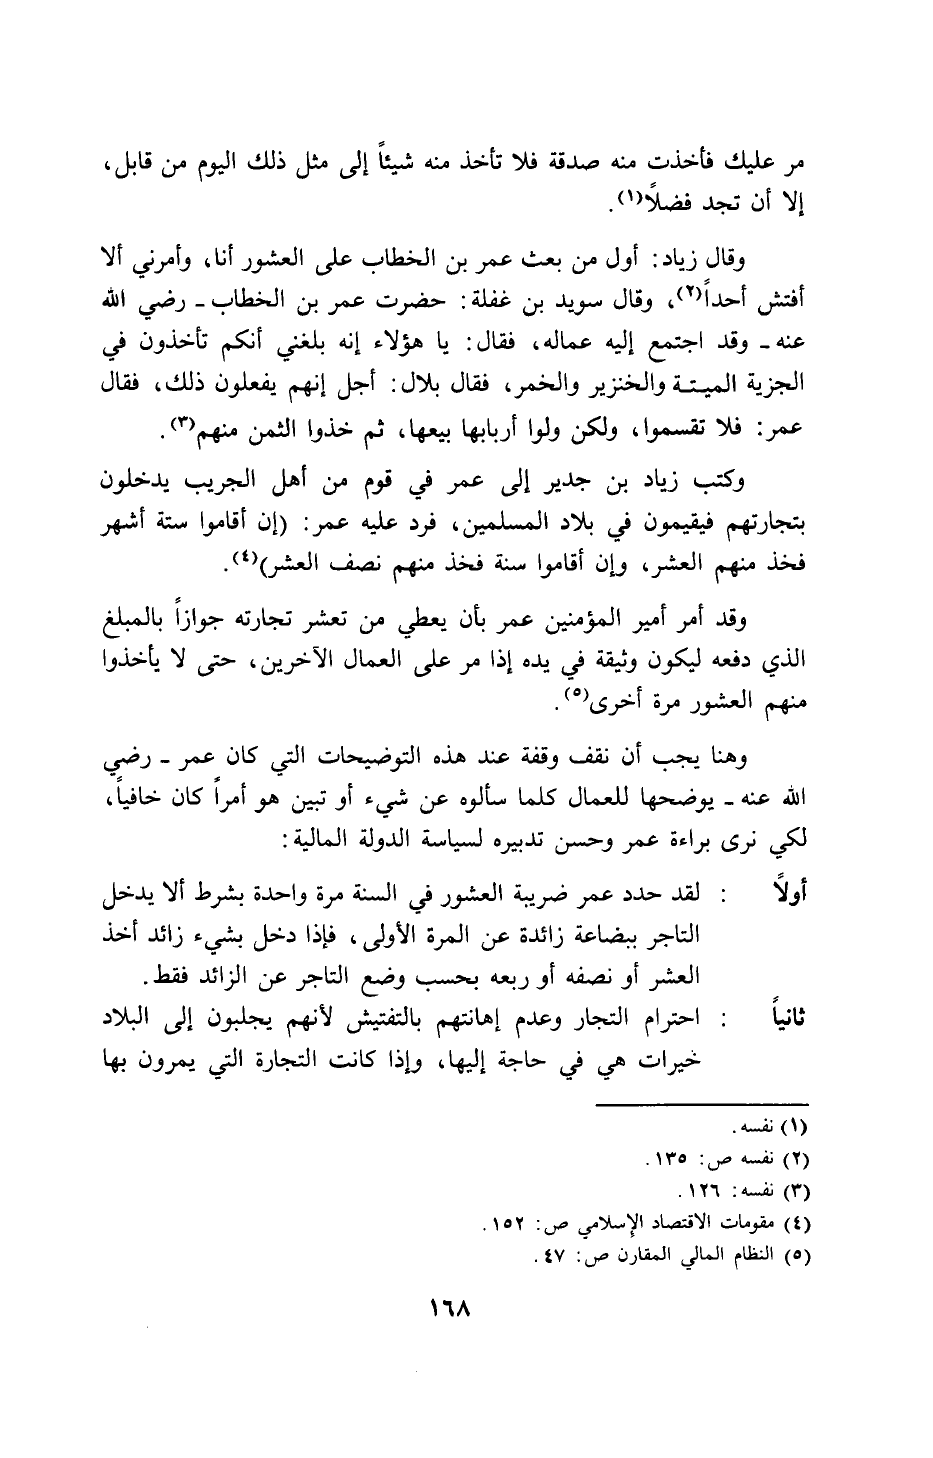 مر عليك فأخذت منه صدقة فلا تأخذ منه شيئاً إلى مثل ذلك اليوم من قابل،
إلا أن تجد فضلاً(١).
وقال زياد: أول من بعث عمر بن الخطاب على العشور أنا، وأمرني ألا
أفتش أحداً(٢)، وقال سويد بن غفلة: حضرت عمر بن الخطاب ـ رضي الله
عنه ـ وقد اجتمع إليه عماله، فقال: يا هؤلاء إنه بلغني أنكم تأخذون في
الجزية الميتة والخنزير والخمر، فقال بلال: أجل إنهم يفعلون ذلك، فقال
عمر: فلا تقسموا، ولكن ولوا أربابها بيعها، ثم خذوا الثمن منهم(٣).
وكتب زياد بن جدير إلى عمر في قوم من أهل الجريب يدخلون
بتجارتهم فيقيمون في بلاد المسلمين، فرد عليه عمر: (إن أقاموا ستة أشهر
فخذ منهم العشر، وإن أقاموا سنة فخذ منهم نصف العشر)(٤).
وقد أمر أمير المؤمنين عمر بأن يعطي من تعشر تجارته جوازاً بالمبلغ
الذي دفعه ليكون وثيقة في يده إذا مر على العمال الآخرين، حتى لا يأخذوا
منهم العشور مرة أخرى(٥).
وهنا يجب أن نقف وقفة عند هذه التوضيحات التي كان عمر ـ رضي
الله عنه ـ يوضحها للعمال كلما سألوه عن شيء أو تبين هو أمراً كان خافياً،
لكي نرى براءة عمر وحسن تدبيره لسياسة الدولة المالية:
أولاً : لقد حدد عمر ضريبة العشور في السنة مرة واحدة بشرط ألا يدخل
التاجر ببضاعة زائدة عن المرة الأولى، فإذا دخل بشيء زائد أخذ
العشر أو نصفه أو ربعه بحسب وضع التاجر عن الزائد فقط.
ثانياً : احترام التجار وعدم إهانتهم بالتفتيش لأنهم يجلبون إلى البلاد
خيرات هي في حاجة إليها، وإذا كانت التجارة التي يمرون بها
(١) نفسه.
(٢) نفسه ص: ١٣٥.
(٣) نفسه: ١٢٦.
(٤) مقومات الاقتصاد الإسلامي ص: ١٥٢.
(٥) النظام المالي المقارن ص: ٤٧.
١٦٨